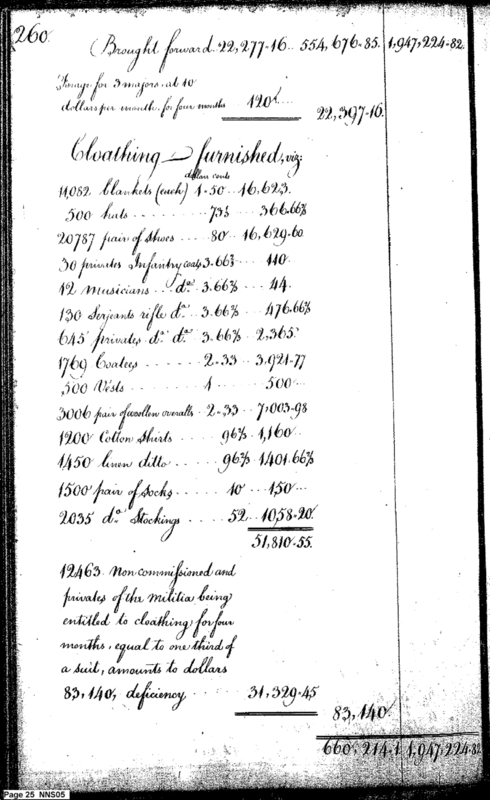 260.
Brought forward. 22,277-16.. 554,676-85. 1,947,224-82.
Forage for 3 majors, at 10
dollars per month, for four months 120 22,397-16.
Cloathing furnished, viz:
dollars cents
11,082 blankets (each) 1-50 ... 16,623.
500 hats 73⅓ 366.66⅔
20787 pair of Shoes 80 16,629-60
30 privates Infantry coats 3.66⅔ 110
12 musicians do 3.66⅔ 44.
130 Serjeants rifle do 3.66⅔ 476.66⅔
645 privates do do 3.66⅔ 2,365
1769 Coatees 2-33 3,921-77
500 Vests 1 500
3006 pair of woollen overalls 2-33 7,003-98
1200 Cotton Shirts 96⅔ 1,160
1450 linen ditto 96⅔ 1401.66⅔
1500 pair of socks 10 150
2035 do Stockings 52 1058-20
51,810-55.
12463 Non commissioned and
privates of the militia being
entitled to cloathing for four
months, equal to one third of
a suit, amounts to dollars
83,140, deficiency 31,329-45
83,140.
660,214-1 1,947,224-82
Page 25 NNS05